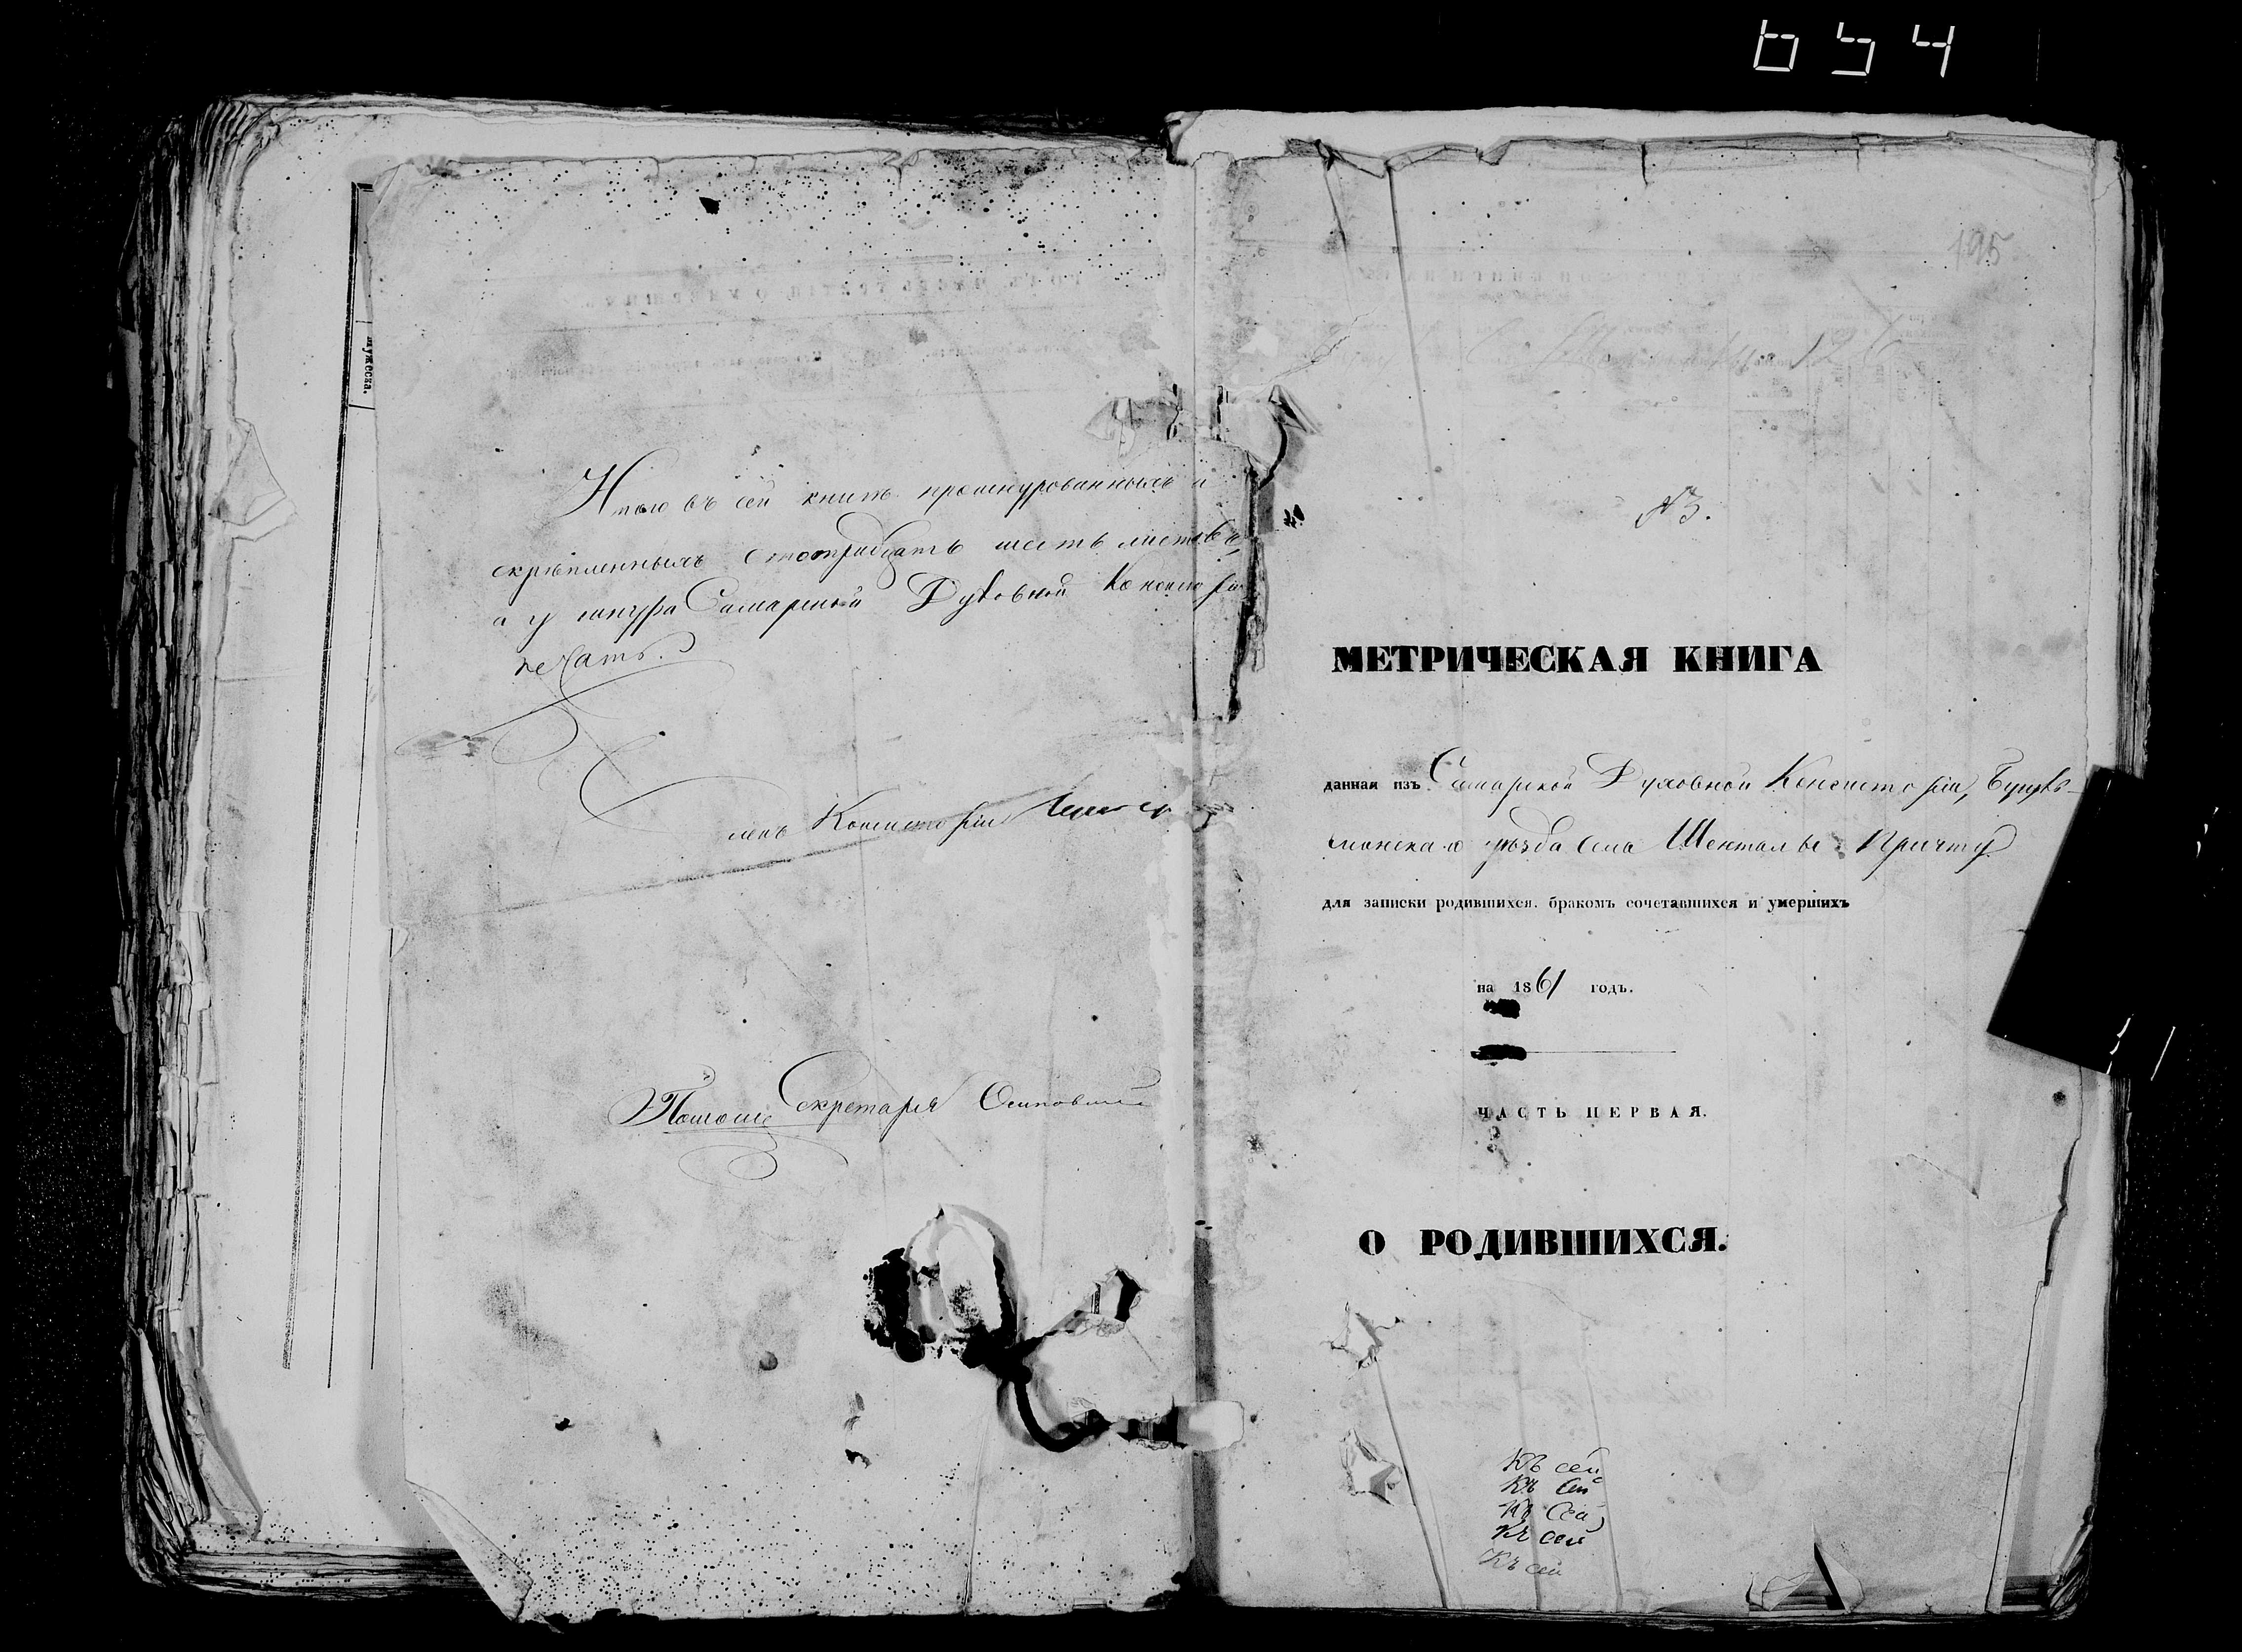 654
мужеска.
Итого въ сей книгѣ прошнурованныхъ и
скрѣпленныхъ стотридцать шесть листовъ,
а у шнура Самарской Духовной Консисторіи
печать.
Членъ Консисторіи
Помощ Секретаря
195
№ 3.
МЕТРИЧЕСКАЯ КНИГА
данная изъ Самарской Духовной Консисторіи, Бугуль-
минскаго уѣзда села Шенталы Причту
для записки родившихся, бракомъ сочетавшихся и умершихъ
на 1861 годъ.
ЧАСТЬ ПЕРВАЯ.
О РОДИВШИХСЯ.
Къ сей
Къ сей
Къ сей
Къ сей
Къ сей